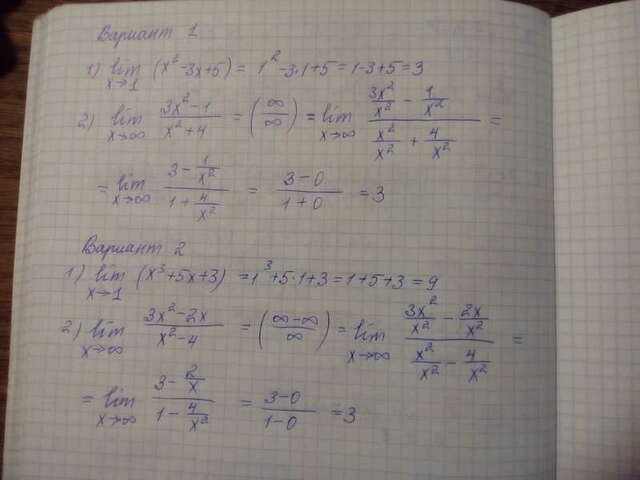 Вариант 1
1) lim x→1 (x²-3x+5) = 1²-3·1+5 = 1-3+5 = 3
2) lim x→∞ (3x²-1)/(x²+4) = (∞/∞) = lim x→∞ (3x²/x² - 1/x²)/(x²/x² + 4/x²) =
= lim x→∞ (3 - 1/x²)/(1 + 4/x²) = (3-0)/(1+0) = 3
Вариант 2
1) lim x→1 (x³+5x+3) = 1³+5·1+3 = 1+5+3 = 9
2) lim x→∞ (3x²-2x)/(x²-4) = ((∞-∞)/∞) = lim x→∞ (3x²/x² - 2x/x²)/(x²/x² - 4/x²) =
= lim x→∞ (3 - 2/x)/(1 - 4/x²) = (3-0)/(1-0) = 3